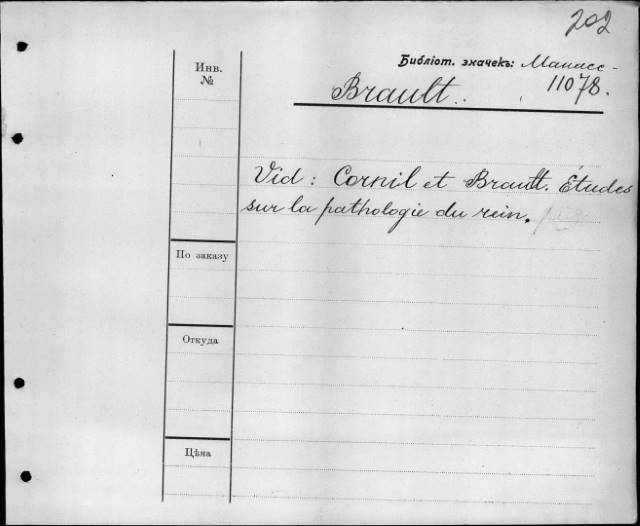 202
Библіот. значекъ: Манасс-
11078.
Инв.
№
Brault.
Vid: Cornil et Brault. Études
sur la pathologie du rein.
По заказу
Откуда
Цѣна